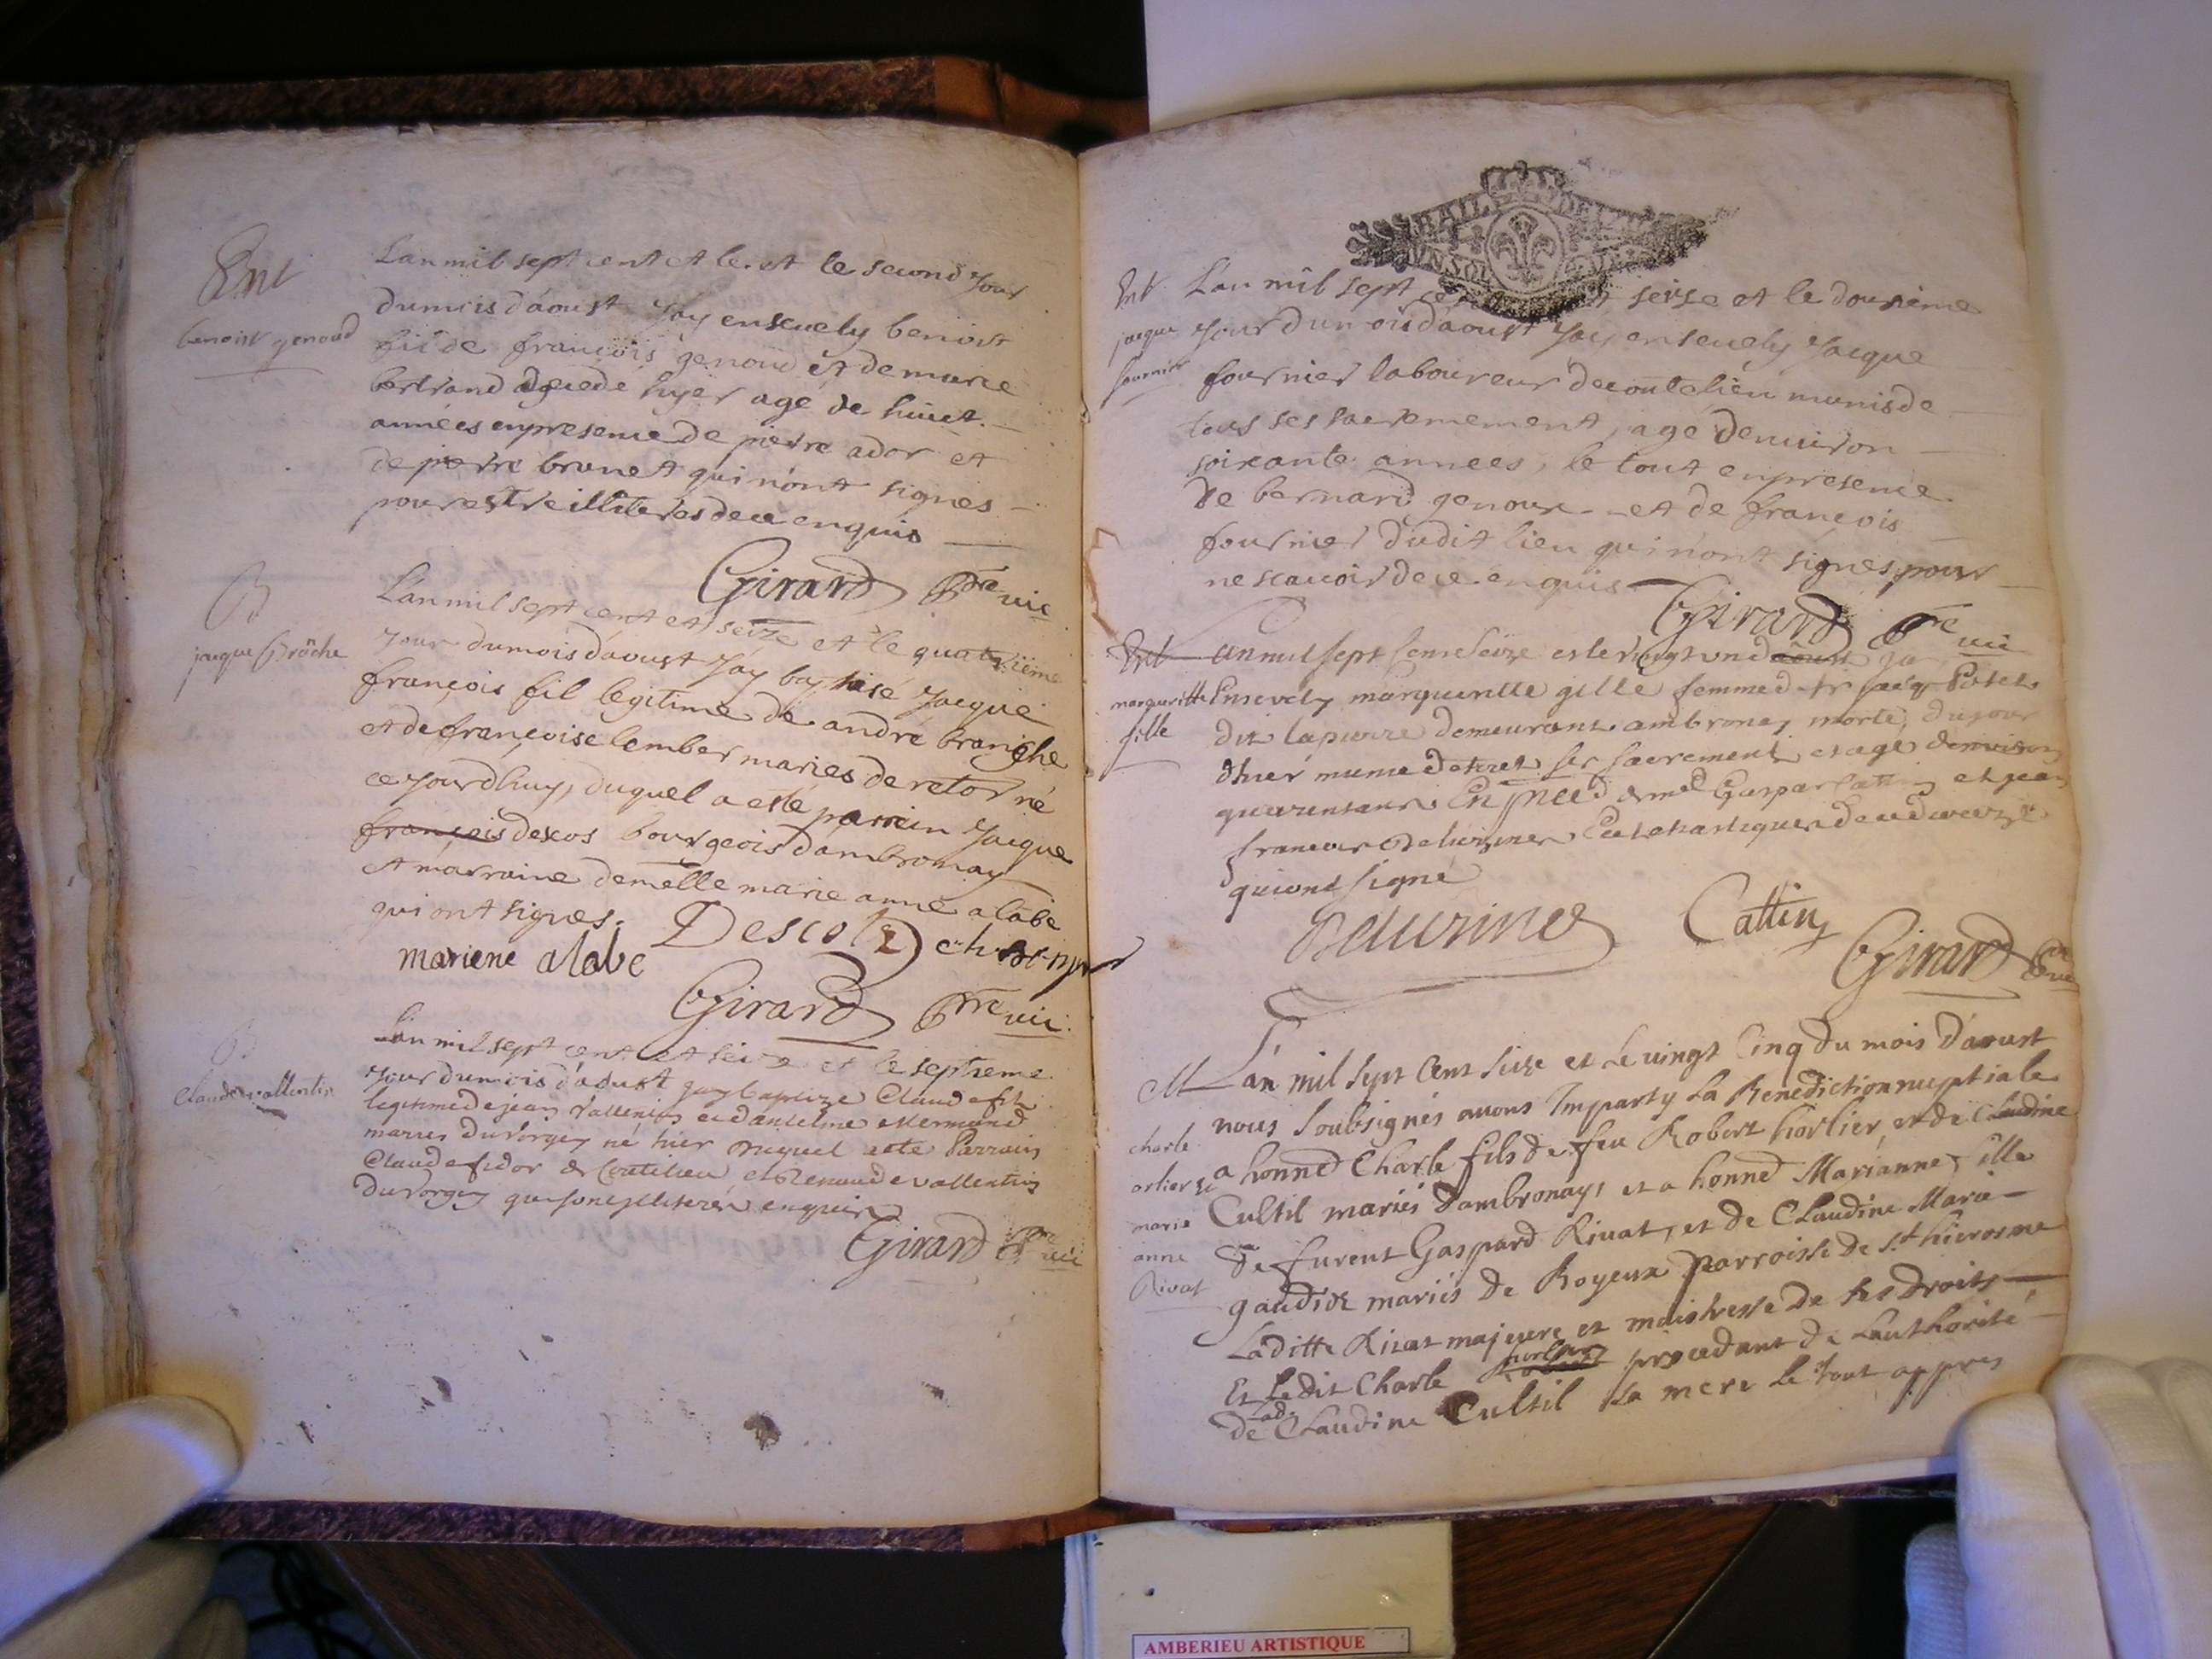 Ent
benoist genoud
L'an mil sept cent et le. et le second jour
du mois d'aoust j'ay enseuely benoist
fil de francois genoud et de marie
bertrand decedé hyer agé de huict
années en presence de pierre ador et
de pierre brunet qui n'ont signés
pour estre illiteres de ce enquis
Girard Pre vic
B
jacque Bröche
L'an mil sept cent et seize et le quatrième
jour du mois d'aoust j'ay baptisé jacque
françois fil legitime de andré branche
et de françoise lember mariés de retor né
ce jourdhuy, duquel a esté parrein jacque
françois descos bourgeois d'ambronay
et marraine demelle marie anne alabe
qui ont signes.
mariene alabe Descos
Girard Pre vic
B
Claude vallentin
L'an mil sept cent et seize et le septieme
jour du mois d'aoust j'ay baptizé Claude fil
legitime de jean vallentin et d'antelme
mariés du vorgey né hier duquel a esté Parrain
Claude fidor de Coutelieu et Renaude vallentin
du vorgey qui sont illiterés enquis
Girard Pre vic
Ent
jacque
fournier
L'an mil sept seize et le douzième
jour du mois d'aoust j'ay enseuely jacque
fournier laboureur de coutelieu munis de
tous ses sacremement, agé d'enuiron
soixante annees, le tout en presence
de bernard genoux et de françois
fournier dudit lieu qui n'ont signes pour
ne scauoir de ce enquis
Girard Pre vic
Ent
margueritte
gille
L'an mil sept cent seize et le vingt un d'aoust j'ay
Ensevely margueritte gille femme de Potet
dit lapierre demeurant ambronay morte du jour
d'hier munie de tous ses sacrements et agé d'enuiron
quarente ans En de Gaspar Cattin et jean
francois Delivrines
qui ont signé
Deliurines Cattin
Girard Pre vic
M
charle
orlier &
marie
anne
Rivat
L'an mil sept Cent seize et le uingt Cinq du mois d'aoust
nous soubsignés auons Imparty La Benediction nuptiale
a honned Charle fils de feu Robert horlier, et de Claudine
Cultil mariés d'ambronay, et a honned Marianne fille
de furent Gaspard Riuat, et de Claudine Marie
gaudide mariés de Boyeux parroisse de St hierosme
Laditte Riuat majeure et maistresse de ses droits
Et Ledit Charle horlier procedant de L'authorité
de Lad. Claudine Cultil sa mere le tout appres
AMBERIEU ARTISTIQUE